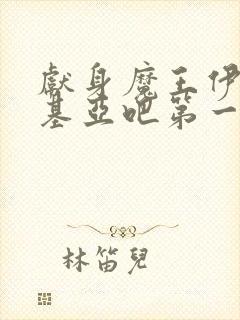 獻身魔王伊
基亞吧第一
林笛兒